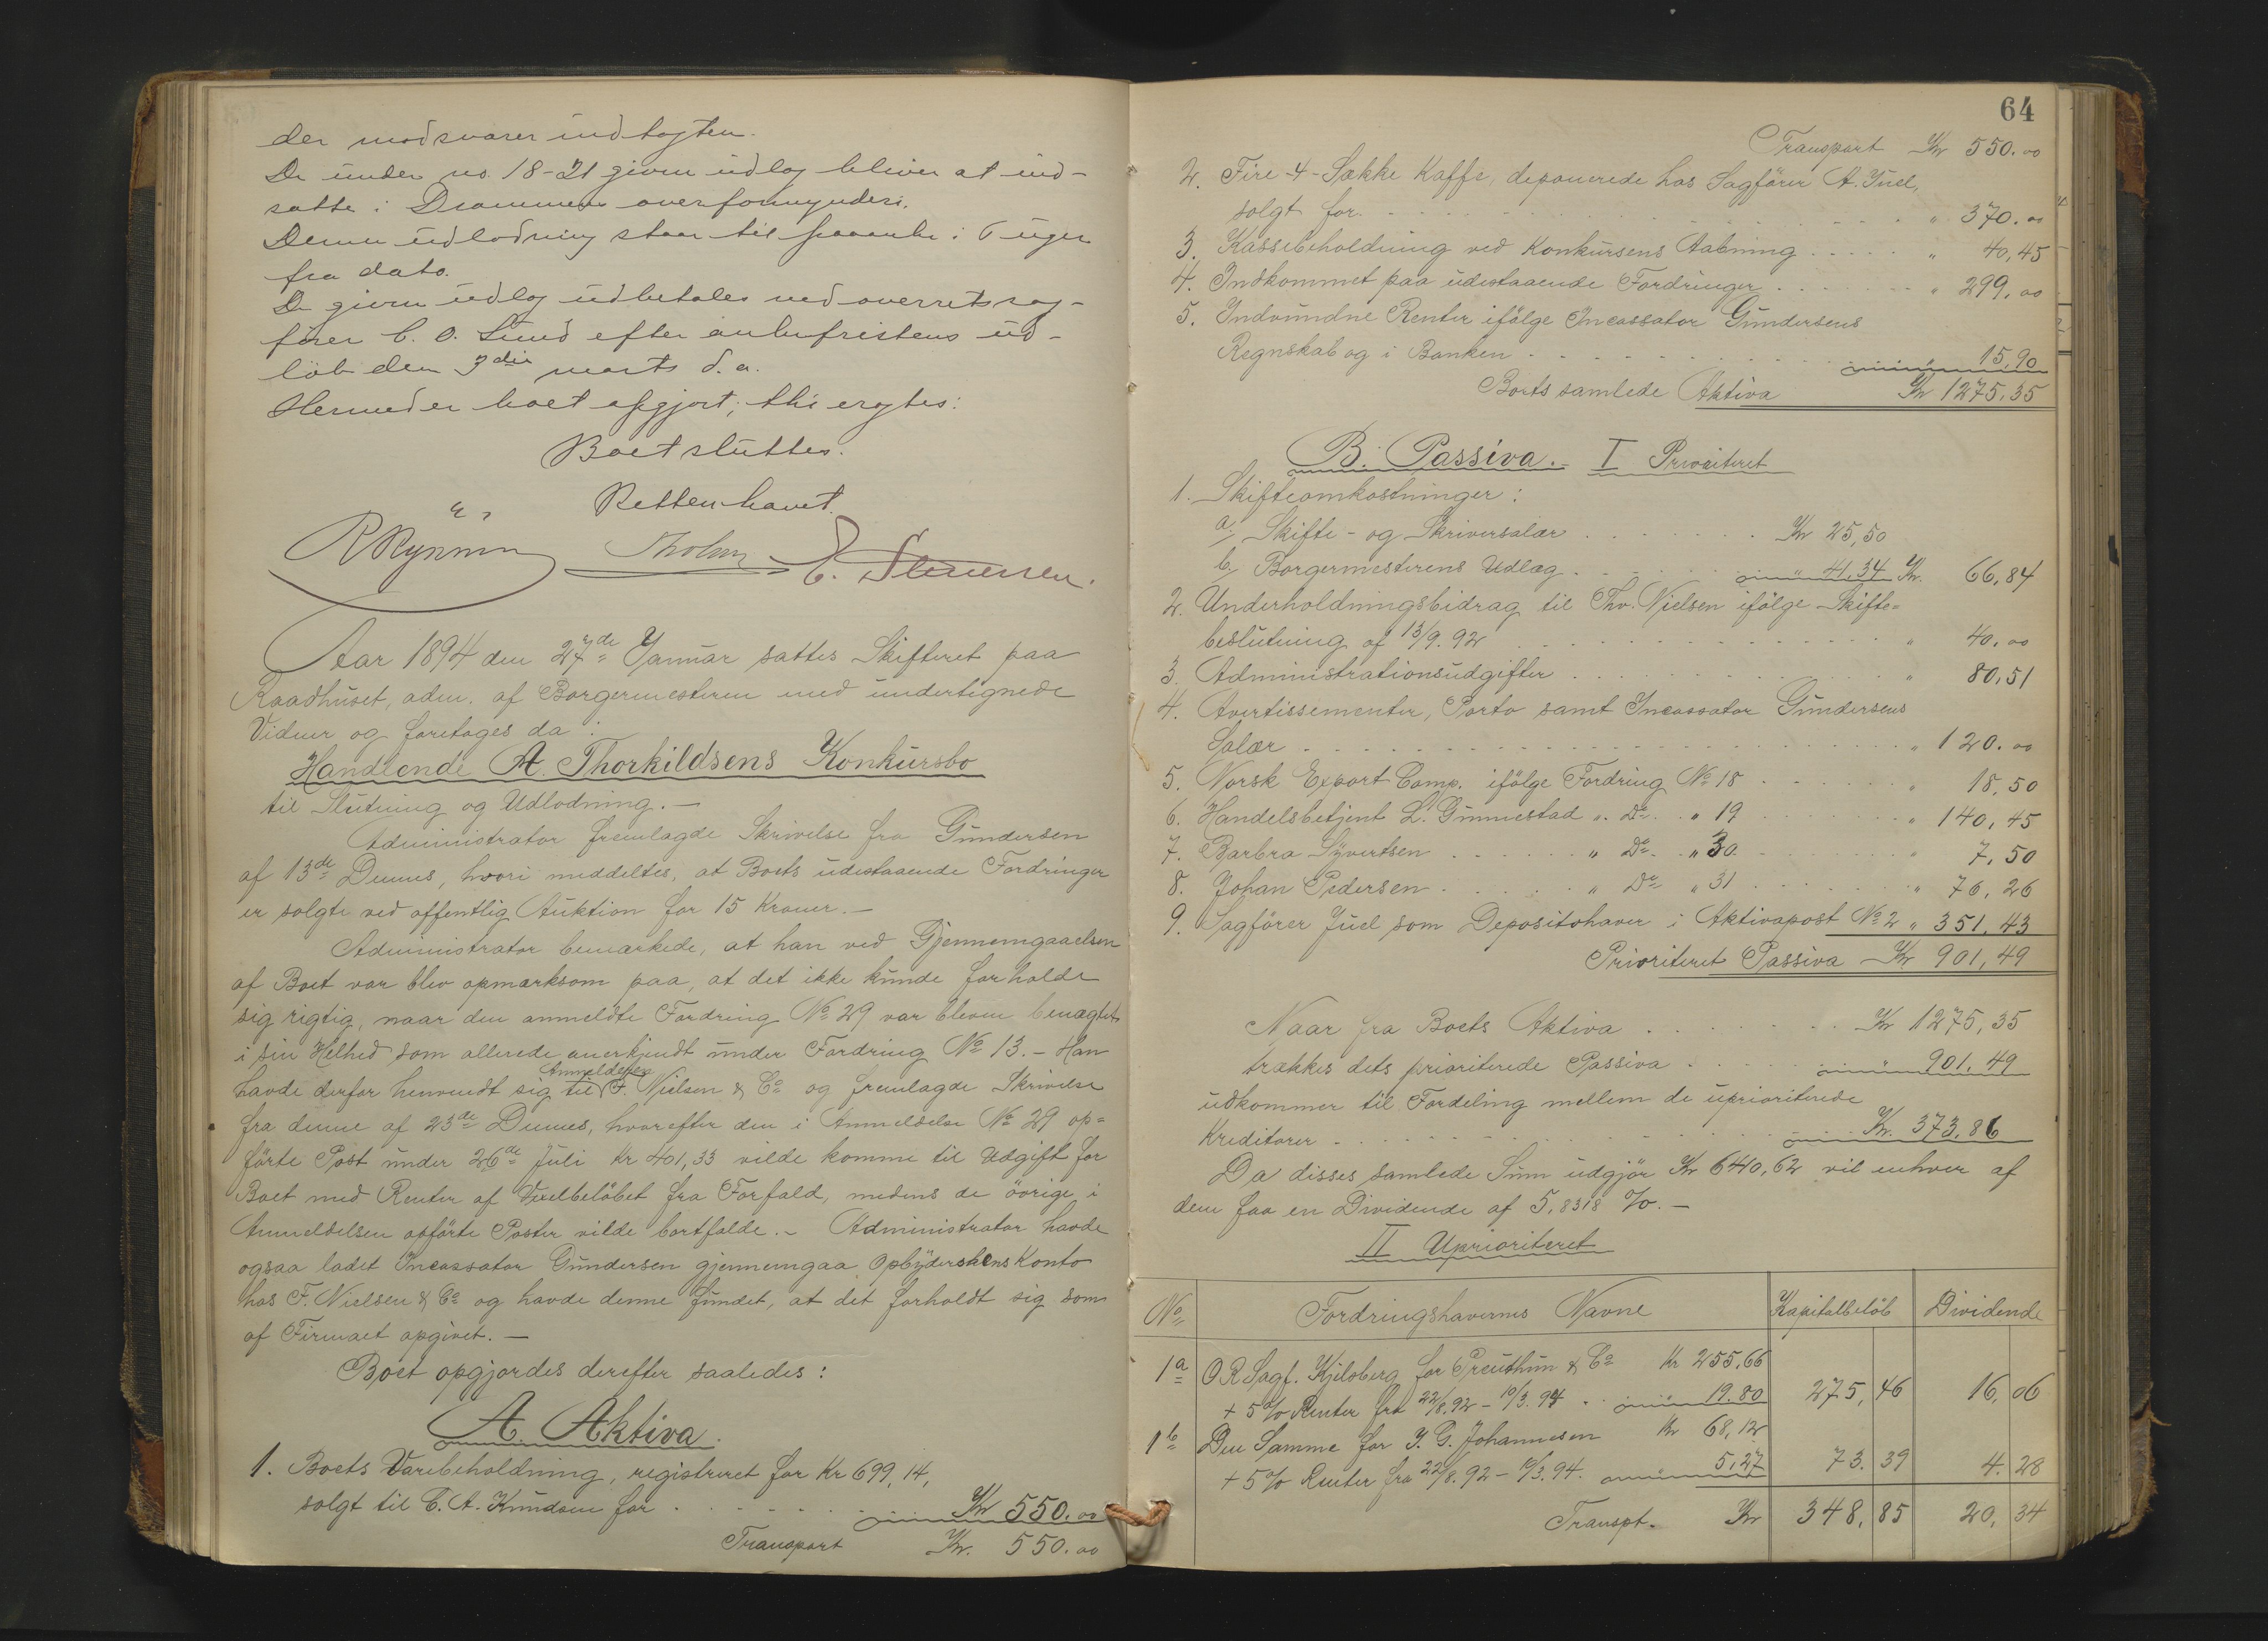 der modsvarer indtægten.
De under no. 18-21 givne udlæg bliver at ind-
sætte i Drammens overformynderi.
Denne udlodning staar til paaanke i 6 uger
fra dato.
De givne udlæg udbetales ved overretssag-
fører C. O. Lund efter ankefristens ud-
løb den 3die marts d. a.
Hermed er boet opgjort; thi eragtes:
Boet sluttes.
Retten hævet.
Aar 1894 den 27de Januar sattes Skifteret paa
Raadhuset, adm. af Borgermesteren med undertegnede
Vidner og foretoges da:
Handlende A. Thorkildsens Konkursbo
til Slutning og Udlodning.—
Administrator fremlagde Skrivelse fra Gundersen
af 13de Dennes, hvori meddeltes, at Boets udestaaende Fordringer
er solgte ved offentlig Auktion for 15 Kroner.—
Administrator bemærkede, at han ved Gjennemgaaelsen
af Boet var blev opmærksom paa, at det ikke kunde forholde
sig rigtig, naar den anmeldte Fordring No 29 var bleven benægtet
i sin Helhed som allerede anerkjendt under Fordring No 13.- Han
havde derfor henvendt sig til Anmelderen F. Nielsen & Co og fremlagde Skrivelse
fra denne af 23de Dennes, hvorefter den i Anmeldelse No 29 op=
förte Post under 26de Juli Kr 401,33 vilde komme til Udgift for
Boet med Renter af Vexelbelöbet fra Forfald, medens de övrige i
Anmeldelsen opförte Poster vilde bortfalde.- Administrator havde
ogsaa ladet Incassator Gundersen gjennemgaa Opbyderskens Konto
hos F. Nielsen & Co og havde denne fundet, at det forholdt sig som
af Firmaet opgivet.—
Boet opgjordes derefter saaledes:
A. Aktiva.
1. Boets Varebeholdning, registreret for Kr 699,14,
solgt til C. A. Knudsen for . . . . . Kr 550.00
Transport Kr. 550.00
64
Transport Kr 550.00
2. Fire -4- Sække Kaffe, deponerede hos Sagförer A. Juel,
solgt for. . . . . . " 370.00
3. Kassebeholdning ved Konkursens Aabning . . . . . " 40,45
4. Indkommet paa udestaaende Fordringer . . . . . " 299,00
5. Indvundne Renter ifölge Incassator Gundersens
Regnskab og i Banken . . . . . " 15,90
Boets samlede Aktiva Kr 1275,35
B. Passiva. I Prioriteret
1. Skifteomkostninger:
a/ Skifte- og Skriversalær . . . . . Kr 25,50
b/ Borgermesterens Udlæg . . . . . " 41,34 Kr. 66,84
2. Underholdningsbidrag til Thv. Nielsen ifölge Skifte=
beslutning af 13/9. 92 . . . . . " 40.00
3. Administrationsudgifter . . . . . " 80,51
4. Avertissementer, Porto samt Incassator Gundersens
Salær . . . . . " 120.00
5. Norsk Export Comp. ifölge Fordring No 18 . . . . . " 18,50
6. Handelsbetjent L. Gunnestad " Do " 19 . . . . . " 140,45
7. Barbra Syvertsen . . . . . " Do " 30 . . . . . " 7,50
8. Johan Pedersen . . . . . " Do " 31 . . . . . " 76,26
9. Sagförer Juel som Depositohaver i Aktivapost No 2 " 351,43
Prioriteret Passiva Kr 901,49
Naar fra Boets Aktiva . . . . . Kr 1275,35
trækkes dets prioriterede Passiva . . . . . " 901,49
udkommer til Fordeling mellem de uprioriterede
Kreditorer . . . . . Kr. 373,86
Da disses samlede Sum udgjör Kr 6410,62 vil enhver af
dem faa en Dividende af 5,8318 %.—
II Uprioriteret
No Fordringshavernes Navne Kapitalbelöb Dividende
1a O R Sagf. Kjelsberg for Preuthun & Co Kr 255,66
+ 5% Renter fra 22/8.92 - 10/3.94 . . " 19.80 275,46 16,06
1b Den Samme for J. G. Johannesen Kr 68,12
+ 5% Renter fra 22/8.92 - 10/3.94. " 5,27 73.39 4.28
Transpt. Kr 348,85 20,34